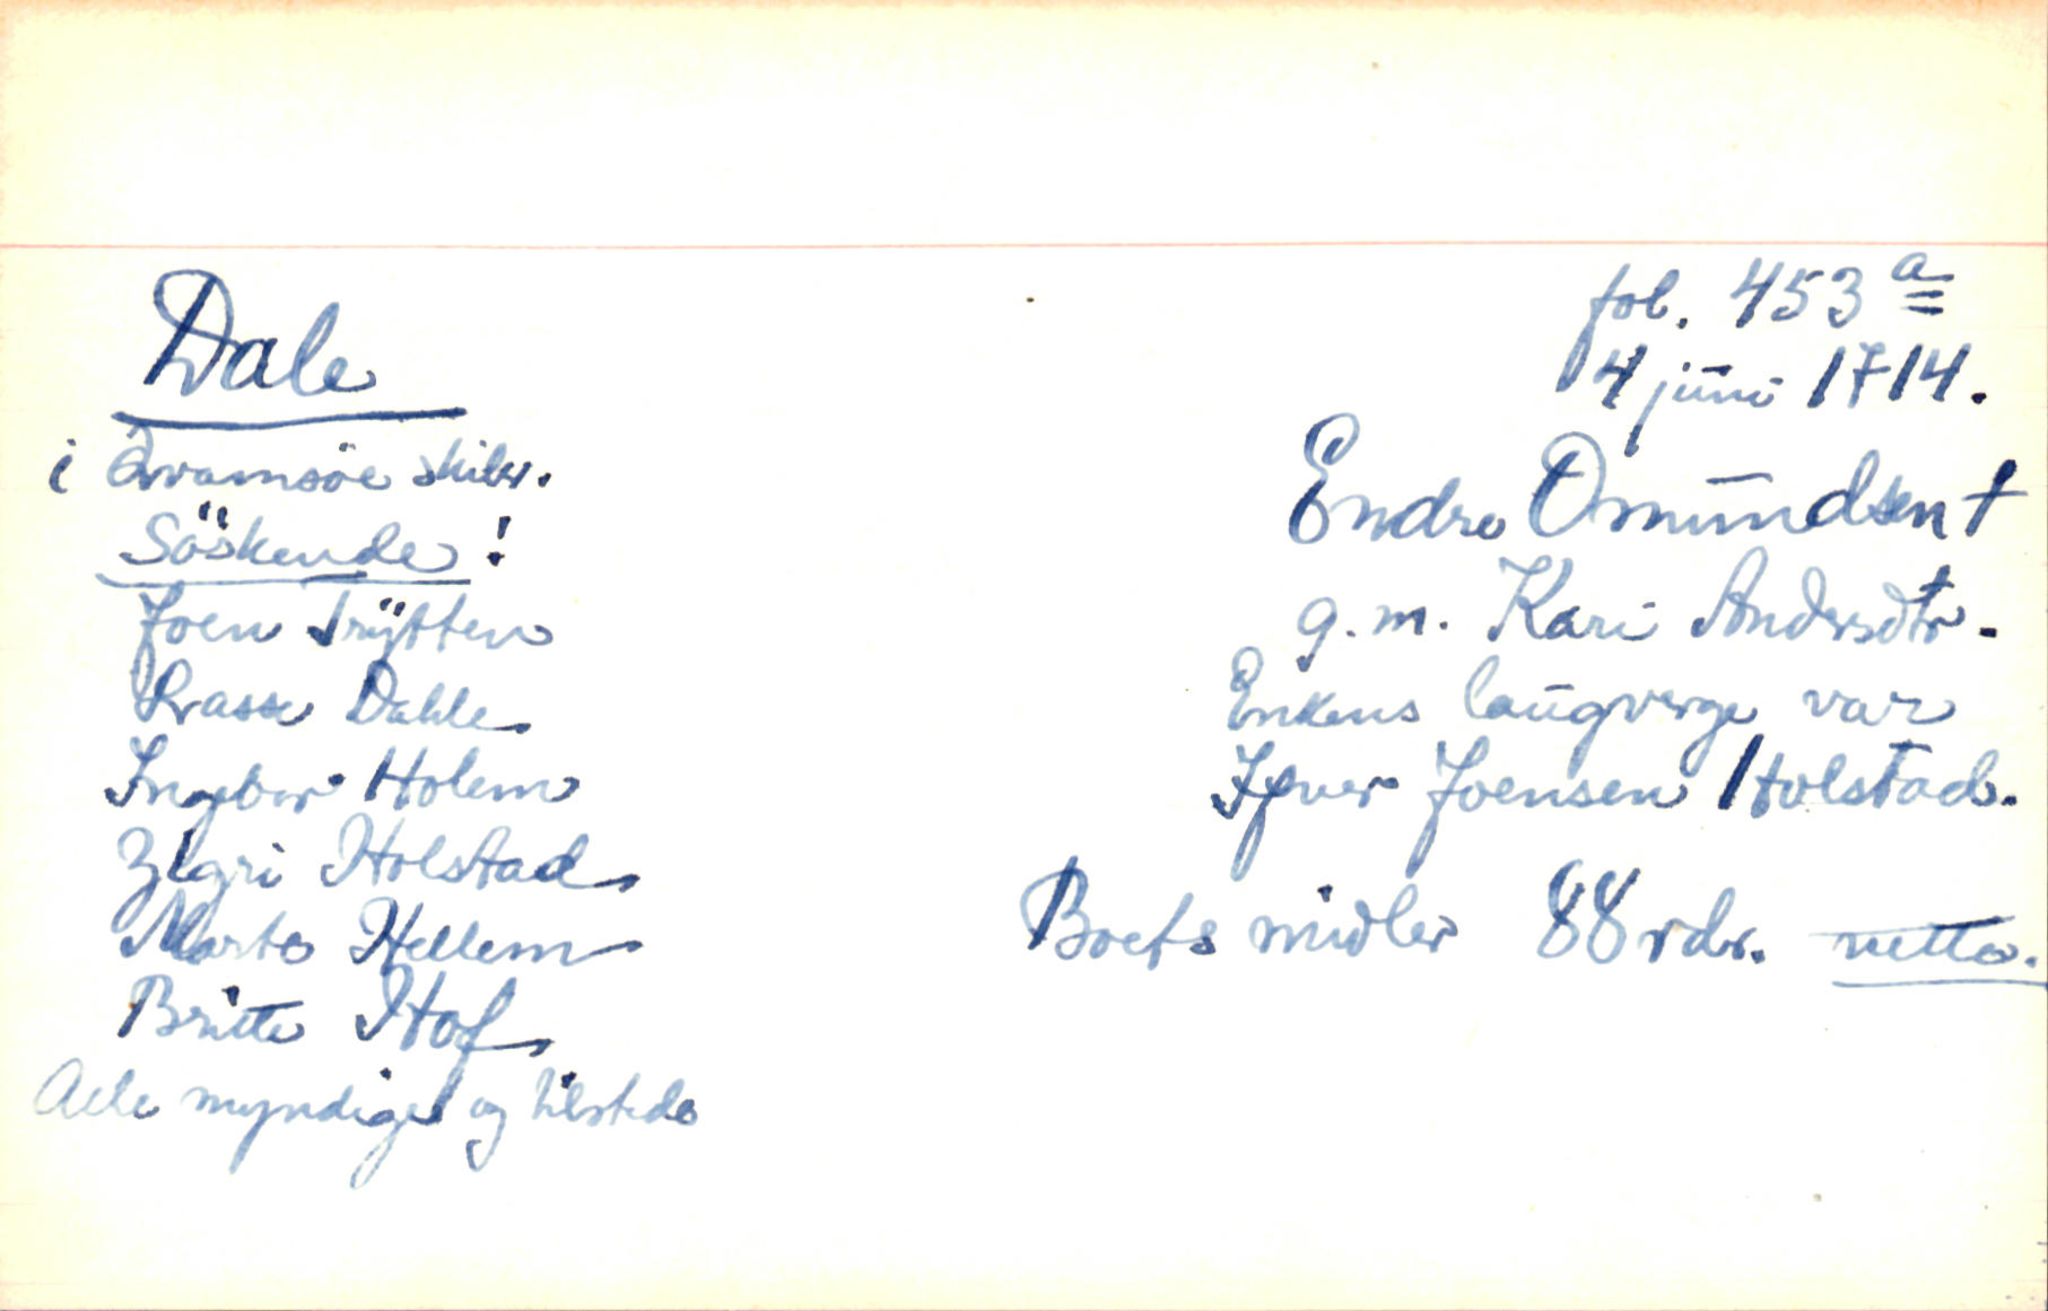 Dale
i Qvamsöe skibr.
Söskende!
Joen Trÿtten
Lasse Dahle
Ingebor Holem
Zigri Holstad
Marte Hellem
Britte Hof
Alle myndige og tilstede
fol. 453 a
4 juni 1714.
Endre Omundsen †
g.m. Kari Andersdtr.
Enkens laugverge var
Ifver Joensen Holstad.
Boets midler 88 rdr. netto.